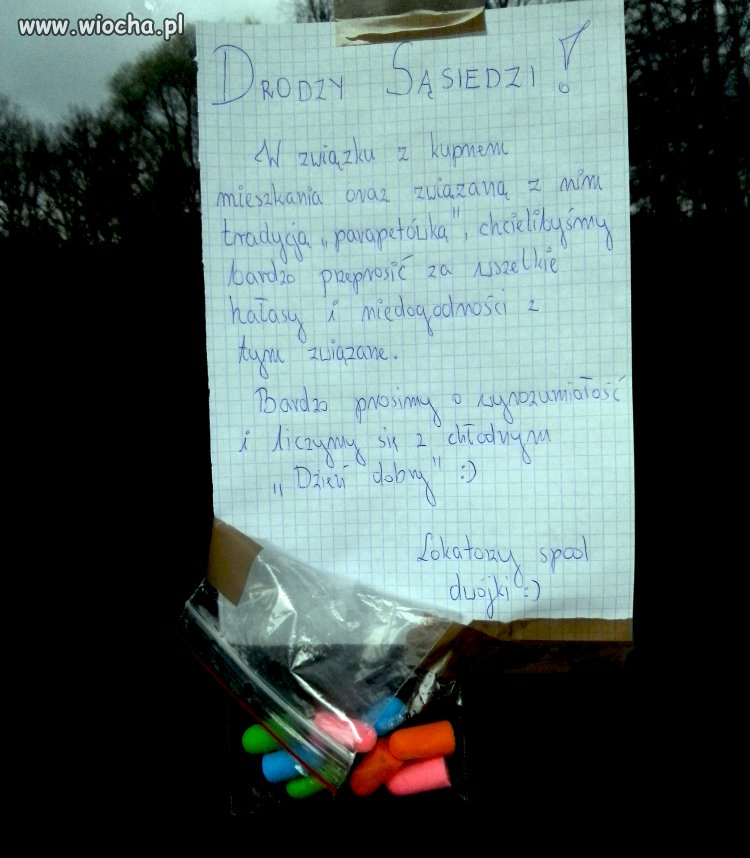 www.wiocha.pl
DRODZY SĄSIEDZI!
W związku z kupnem
mieszkania oraz związaną z nim
tradycją „parapetówką", chcielibyśmy
bardzo przeprosić za wszelkie
hałasy i niedogodności z
tym związane.
Bardzo prosimy o wyrozumiałość
i liczymy się z chłodnym
„Dzień dobry" :)
Lokatorzy spod
dwójki :)